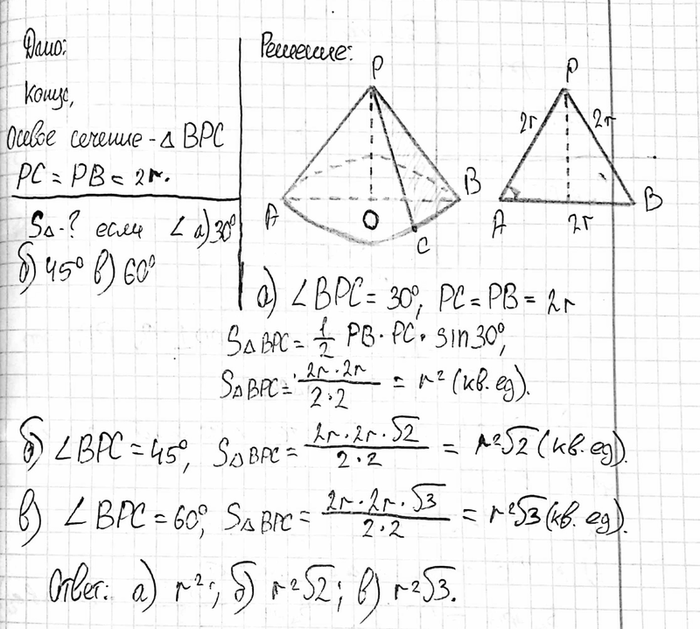 Дано:
Конус,
Осевое сечение - Δ BPC
PC = PB = 2r.
S△-? если ∠ а) 30°
б) 45° в) 60°
Решение:
P
A
O
C
B
P
2r
2r
A
2r
B
а) ∠BPC = 30°, PC = PB = 2r
S△BPC = 1/2 PB · PC · sin 30°,
S△BPC = 2r · 2r / 2 · 2 = r² (кв. ед).
б) ∠BPC = 45°, S△BPC = 2r · 2r · √2 / 2 · 2 = r²√2 (кв. ед).
в) ∠BPC = 60°, S△BPC = 2r · 2r · √3 / 2 · 2 = r²√3 (кв. ед).
Ответ: а) r²; б) r²√2; в) r²√3.